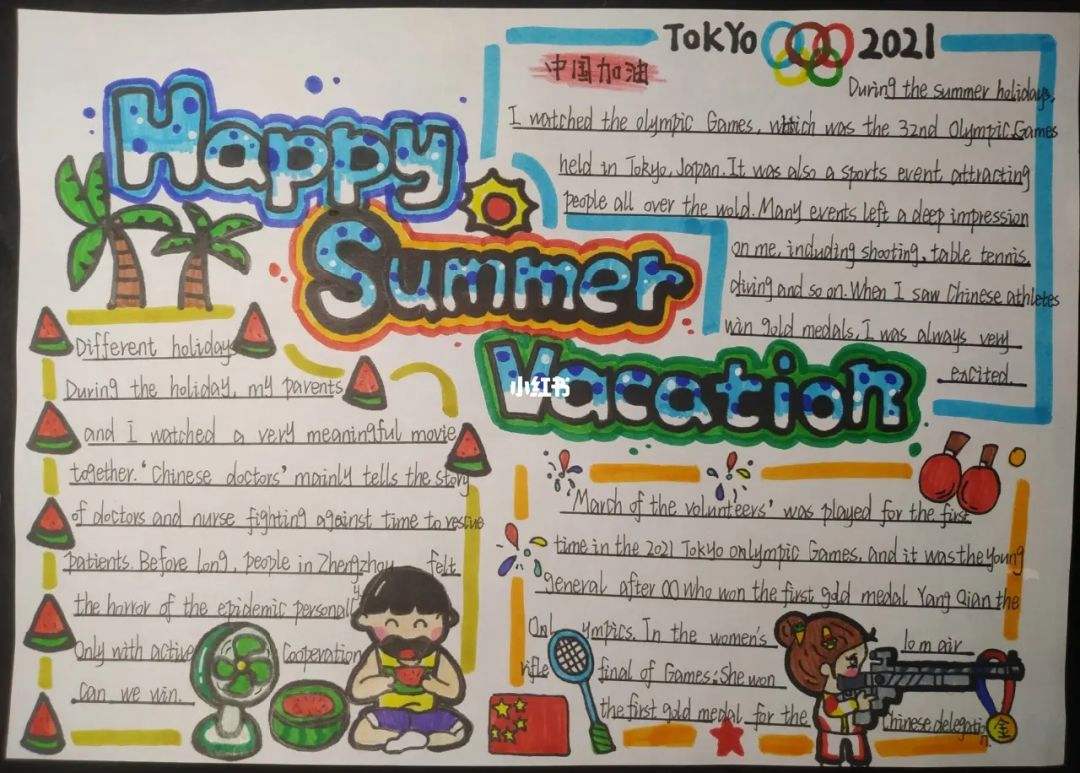 TOKYO 2021
中国加油
During the summer holidays,
I watched the olympic Games, which was the 32nd Olympic Games
held in Tokyo, Japan. It was also a sports event attracting
people all over the wold. Many events left a deep impression
on me, including shooting, table tennis,
diving and so on. When I saw Chinese athletes
wan gold medals, I was always very
excited.
Happy
Summer
Vacation
小红书
Different holiday
During the holiday, my parents
and I watched a very meaningful movie
together. "Chinese doctors" mainly tells the story
of doctors and nurse fighting against time to rescue
patients. Before long, people in Zhengzhou felt
the horror of the epidemic personally
Only with active Cooperation
can we win.
"March of the volunteers" was played for the first
time in the 2021 Tokyo onlympic Games, and it was the young
general after 00 who won the first gold medal Yang Qian the
Onl ympics. In the women's 10 m air
rifle final of Games; She won
the first gold medal for the Chinese delegation.
金